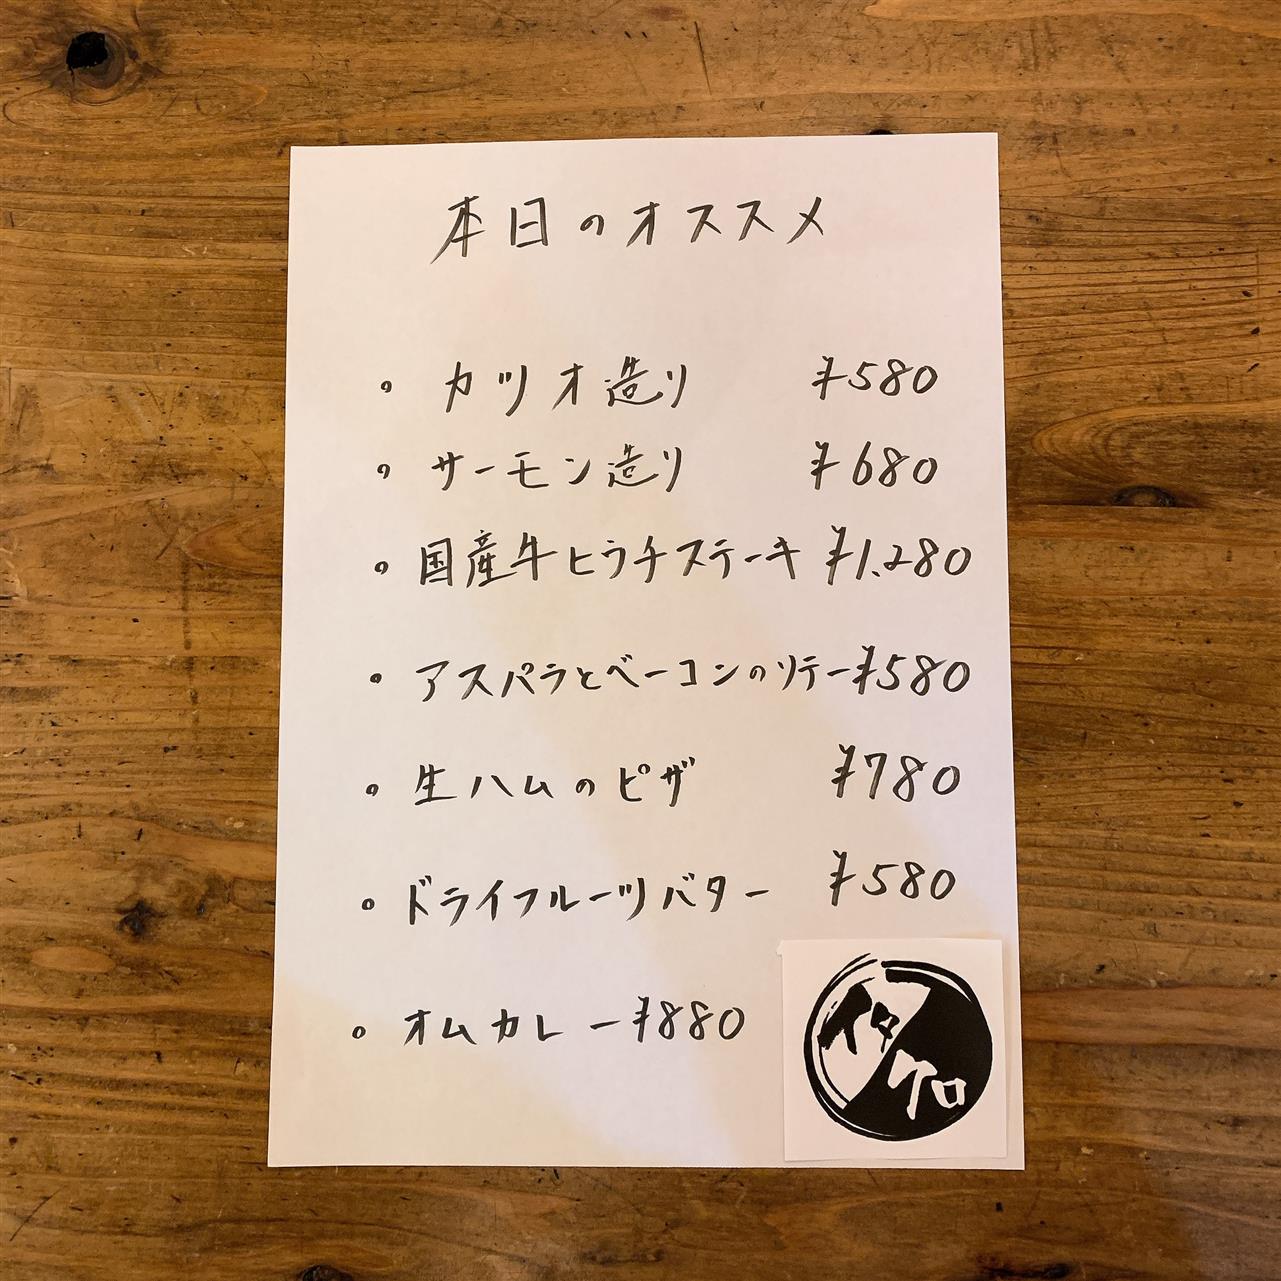 本日のオススメ
。カツオ造り ¥580
。サーモン造り ¥680
。国産牛ヒウチステーキ ¥1.280
。アスパラとベーコンのソテー ¥580
。生ハムのピザ ¥780
。ドライフルーツバター ¥580
。オムカレー ¥880
イタ
クロ